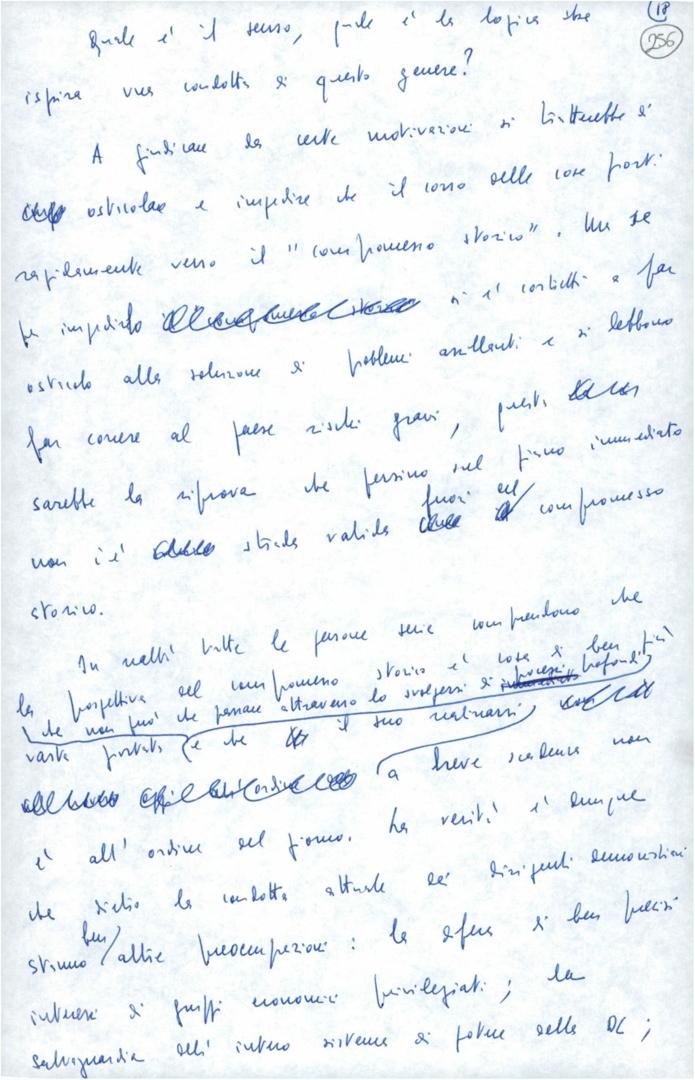 18
256
Quale è il senso, quale è la logica che
ispira una condotta di questo genere?
A giudicare da certe motivazioni si tratterebbe di
ostacolare e impedire che il corso delle cose porti
rapidamente verso il "compromesso storico". Ma se
per impedirlo si è costretti a far
ostacolo alla soluzione di problemi assillanti e si debbono
far correre al paese rischi gravi, questa
sarebbe la riprova che persino sul piano immediato
fuori del
non c'è strada valida compromesso
storico.
In realtà tutte le persone serie comprendono che
la prospettiva del compromesso storico è cosa di ben più
che non può che passare attraverso lo svolgersi di processi profondi
vasta portata e che il suo realizzarsi
a breve scadenza non
è all'ordine del giorno. La verità è dunque
che dietro la condotta attuale dei dirigenti democristiani
ben
stanno altre preoccupazioni: la difesa di ben precisi
interessi di gruppi economici privilegiati; la
salvaguardia dell'intero sistema di potere della DC;